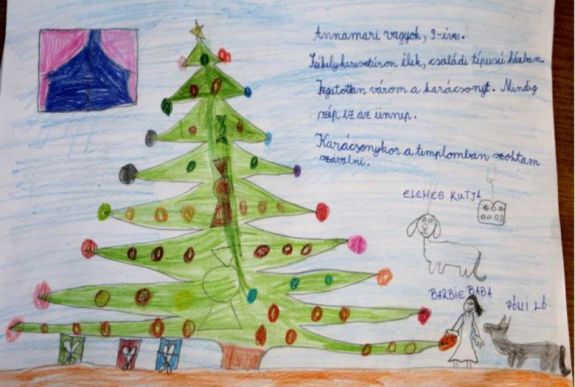 Annamari vagyok, 9-éves.
Székelykeresztúron élek, családi típusú házban.
Izgatottan várom a karácsonyt. Mindig
szép ez az ünnep.
Karácsonykor a templomban szoktam
szavalni.
ELEMES KUTJA
BARBIE BABA
PÓNI LÓ